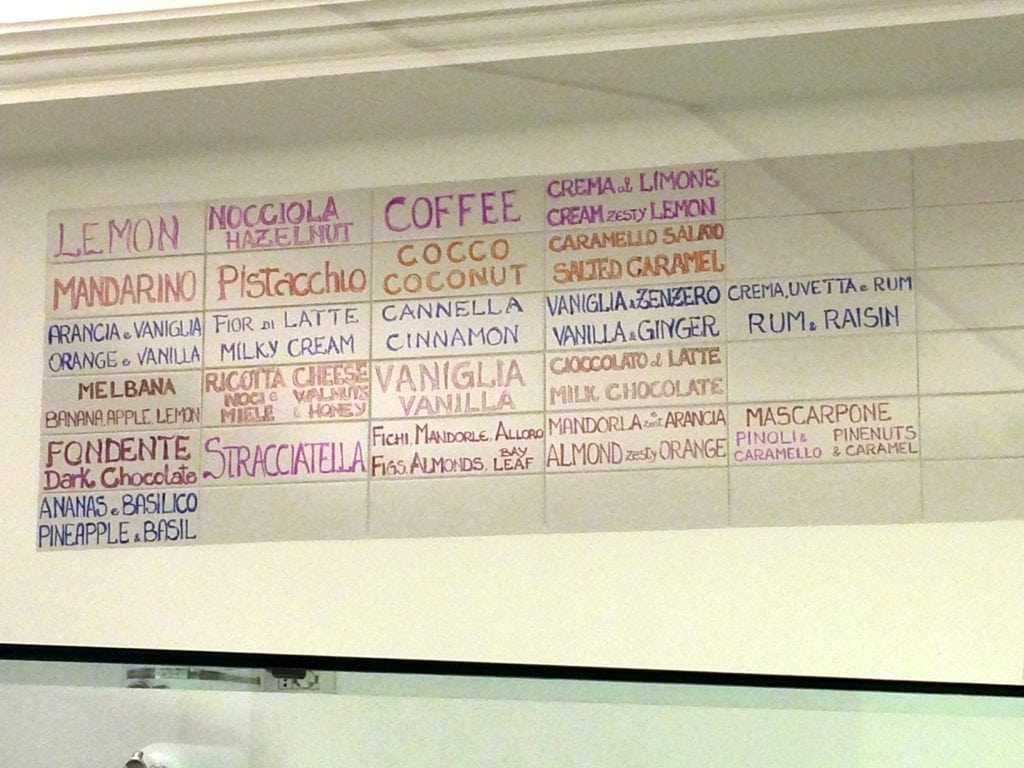 LEMON
MANDARINO
ARANCIA e VANIGLIA
ORANGE e VANILLA
MELBANA
BANANA, APPLE, LEMON
FONDENTE
Dark Chocolate
ANANAS e BASILICO
PINEAPPLE & BASIL
NOCCIOLA
HAZELNUT
Pistacchio
FIOR DI LATTE
MILKY CREAM
RICOTTA CHEESE
NOCI e WALNUTS
MIELE & HONEY
STRACCIATELLA
COFFEE
COCCO
COCONUT
CANNELLA
CINNAMON
VANIGLIA
VANILLA
FICHI, MANDORLE, ALLORO
FIGS, ALMONDS, BAY LEAF
CREMA al LIMONE
CREAM zesty LEMON
CARAMELLO SALATO
SALTED CARAMEL
VANIGLIA & ZENZERO
VANILLA & GINGER
CIOCCOLATO al LATTE
MILK CHOCOLATE
MANDORLA ARANCIA
ALMOND zesty ORANGE
CREMA, UVETTA e RUM
RUM & RAISIN
MASCARPONE
PINOLI & PINENUTS
CARAMELLO & CARAMEL